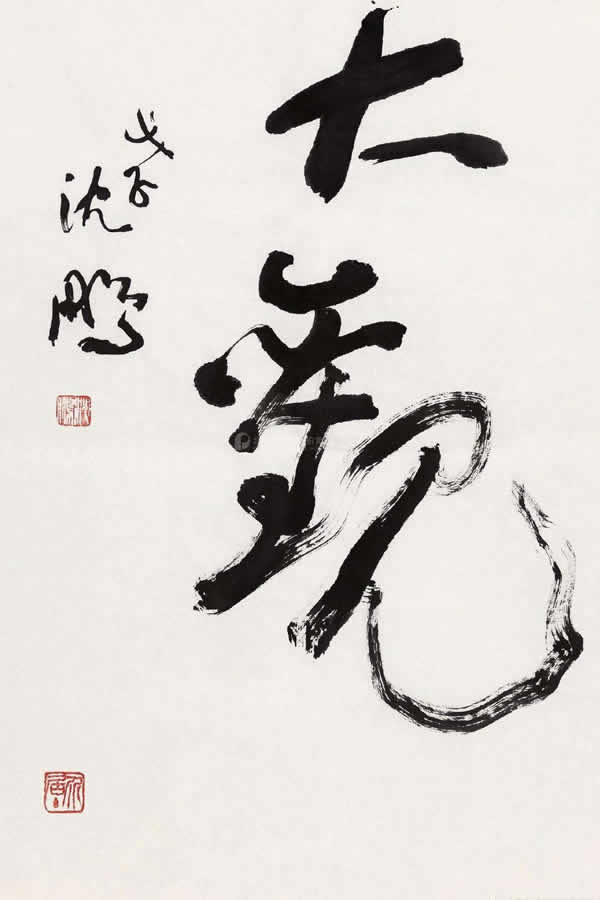 大觀
戊子
沈鵬